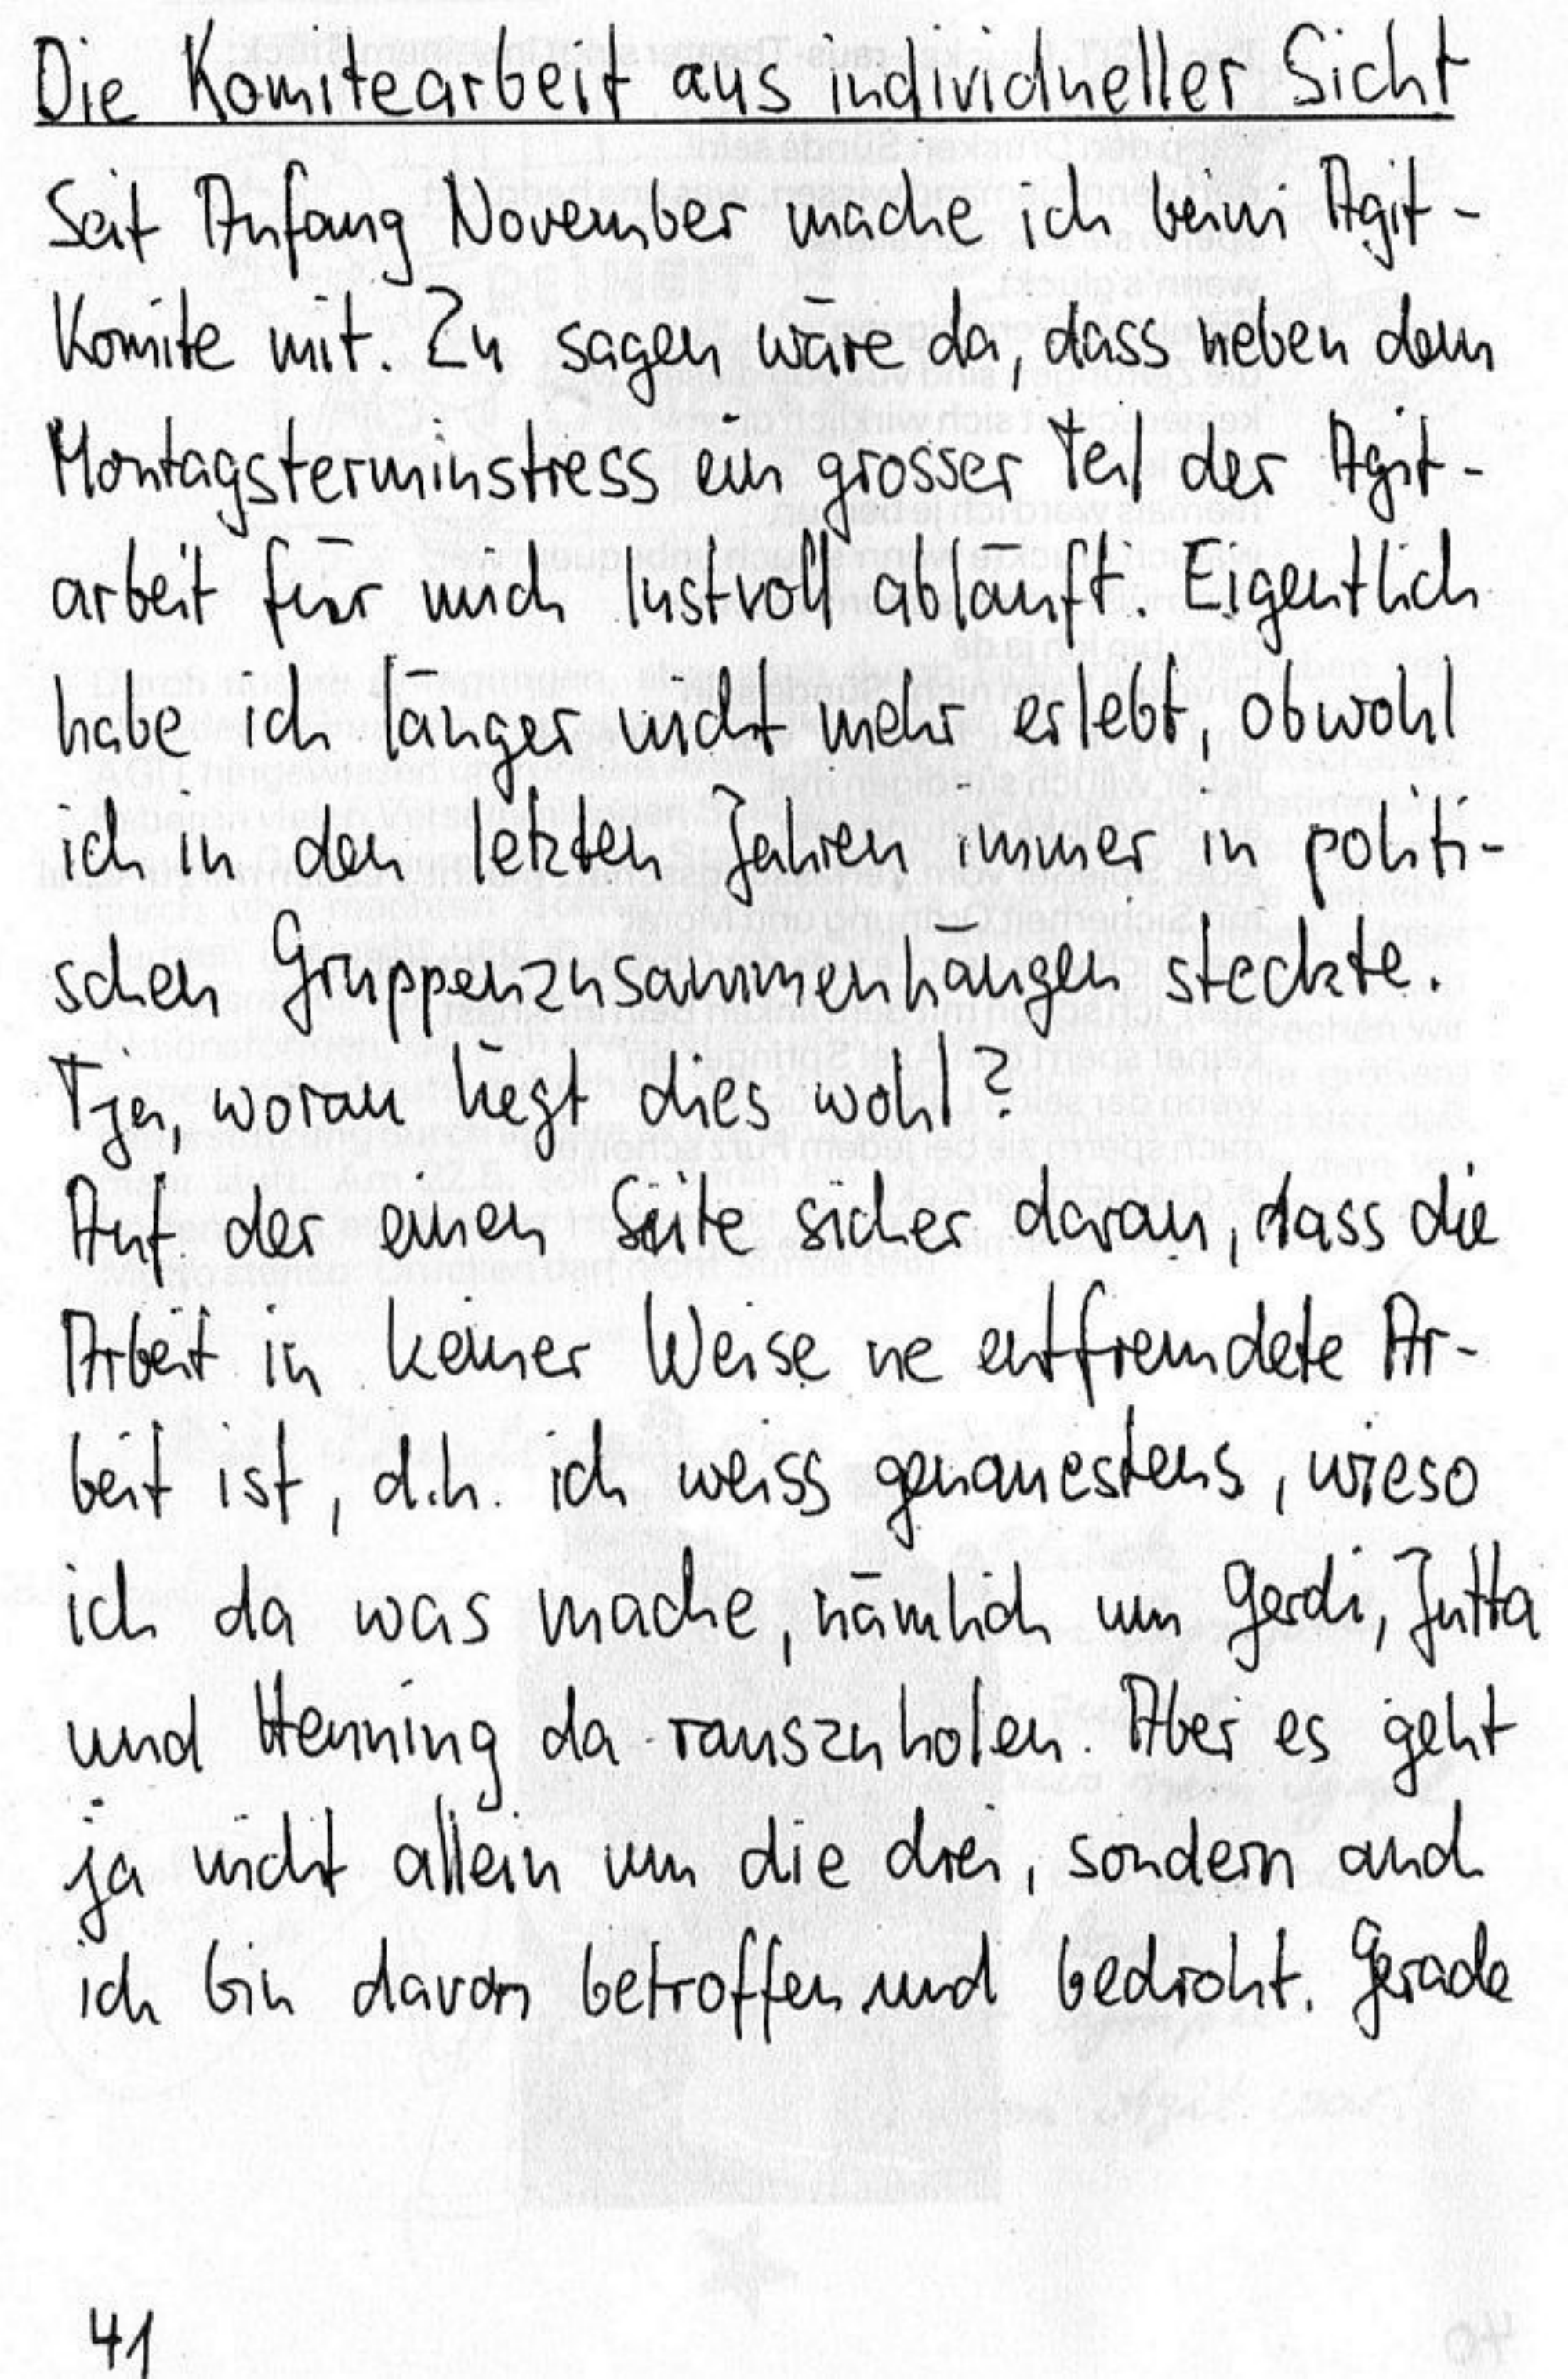 Die Komitearbeit aus individueller Sicht
Seit Anfang November mache ich beim Agit-
Komite mit. Zu sagen wäre da, dass neben dem
Montagsterminstress ein grosser Teil der Agit-
arbeit für mich lustvoll abläuft. Eigentlich
habe ich länger nicht mehr erlebt, obwohl
ich in den letzten Jahren immer in politi-
schen Gruppenzusammenhängen steckte.
Tja, woran liegt dies wohl?
Auf der einen Seite sicher daran, dass die
Arbeit in keiner Weise ne entfremdete Ar-
beit ist, d.h. ich weiss genauestens, wieso
ich da was mache, nämlich um Gerdi, Jutta
und Henning da rauszuholen. Aber es geht
ja nicht allein um die drei, sondern auch
ich bin davon betroffen und bedroht. Gerade
41